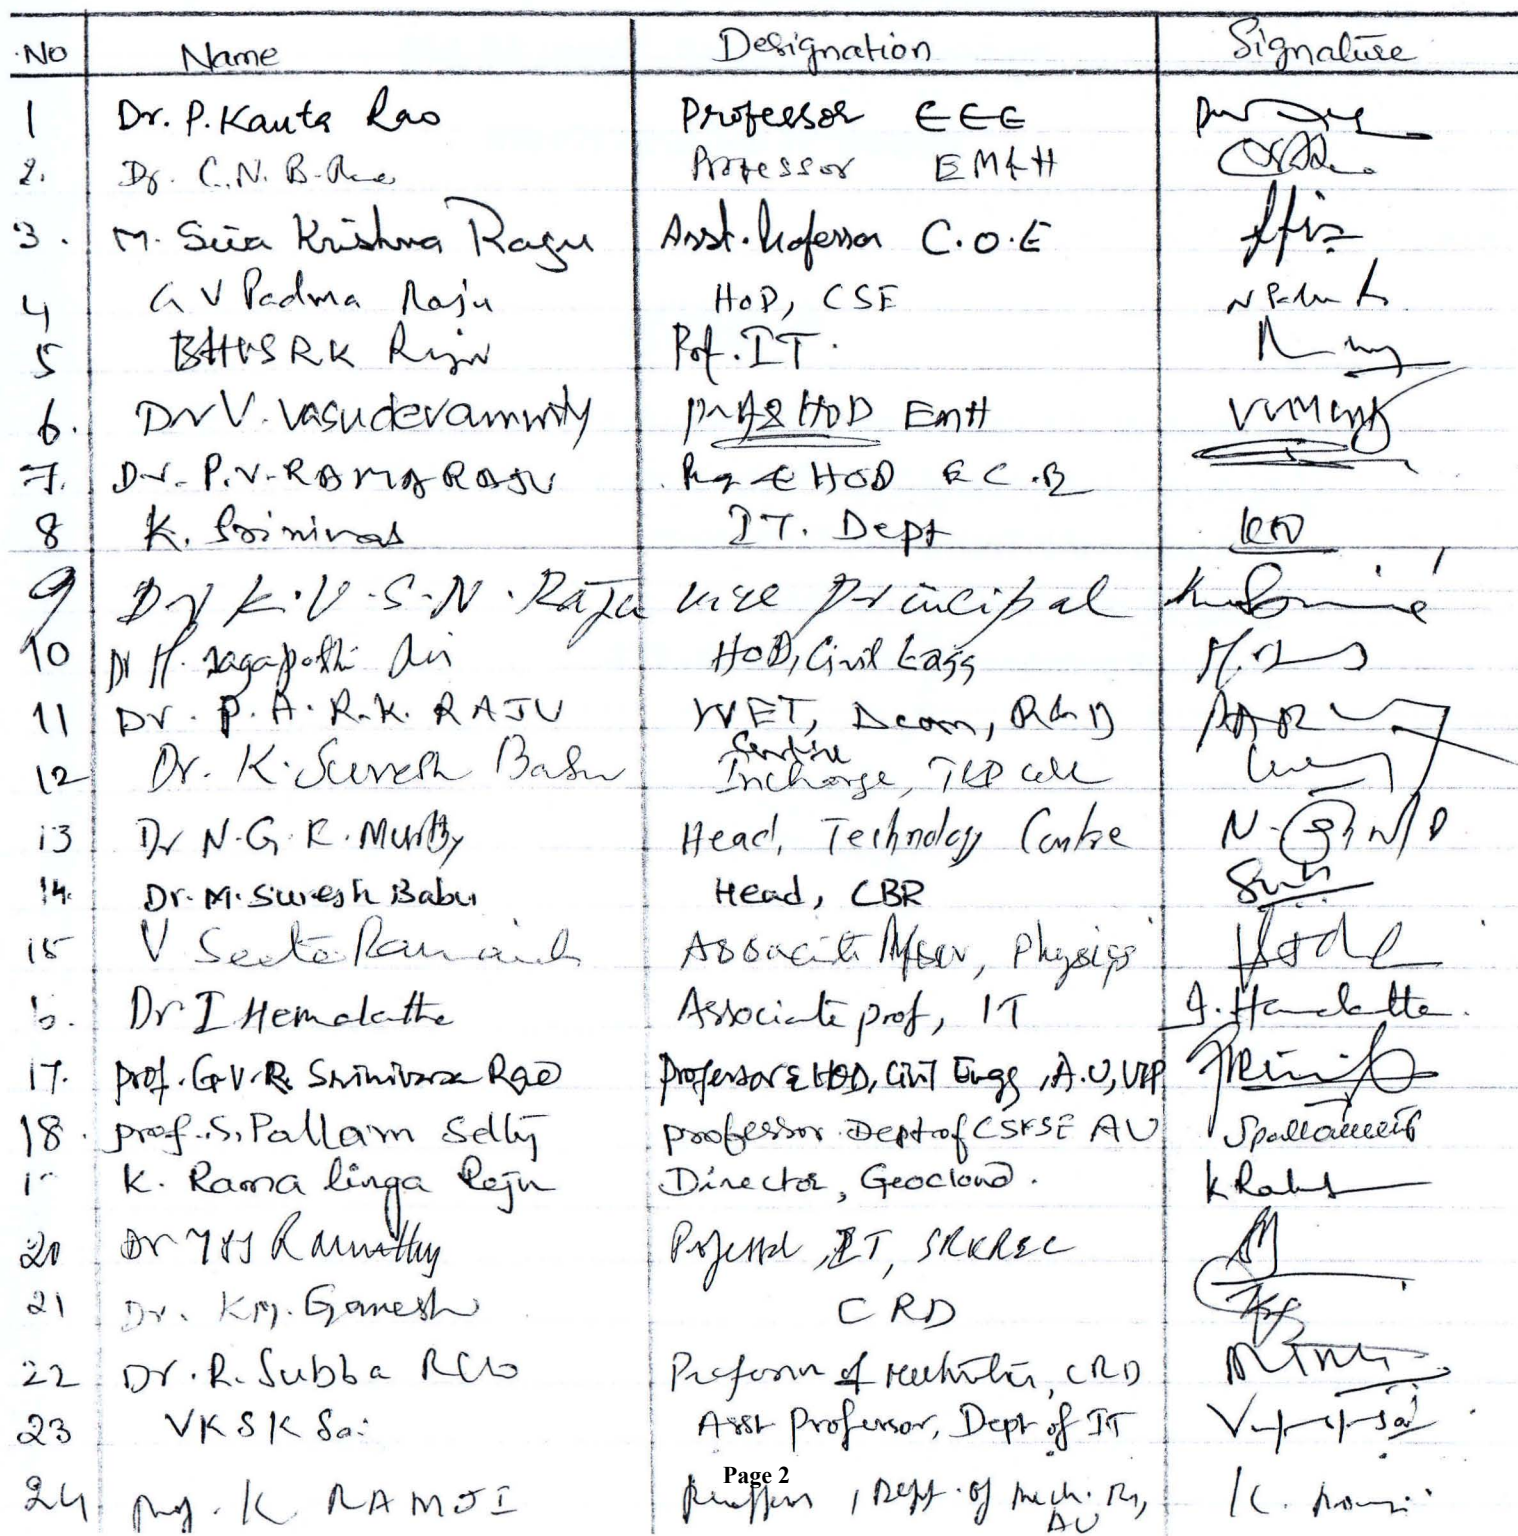 No Name Designation Signature
1 Dr. P. Kanta Rao Professor EEE
2. Dr. C.N.B. Rao Professor EM&H
3. M. Siva Krishna Raju Asst. Professor C.O.E
4 G V Padma Raju HOD, CSE
5 BHVSRK Raju Prof. IT.
6. Dr V. Vasudevamurty Prof & HOD EMH
7. Dr. P.V. RAMA RAJU Prof & HOD E.C.E
8 K. Srinivas IT. Dept
9 Dr K.V.S.N. Raju Vice Principal
10 Dr P. Jagapathi HOD, Civil Engg
11 Dr. P.A.R.K. RAJU WET, Dean, R&D
12 Dr. K. Suresh Babu Incharge, cell
13 Dr N.G.K. Murthy Head, Technology Centre
14. Dr. M. Suresh Babu Head, CBR
15 V Seeta Ramaiah Associate Physics
Dr I Hemalatha Associate prof, IT I. Hemalatha.
17. prof. G.V.R. Srinivasa Rao Professor & HOD, Civil Engg, A.U,
18. prof. S. Pallam Setty professor Dept of CS&SE AU
K. Rama linga Raju Director, Geocloud.
20 Dr Murthy Professor, IT, SRKREC
21 Dr. KM. Ganesh CRD
22 Dr. R. Subba Rao Professor of CRD
23 VKSK Sai Asst Professor, Dept of IT
24 Prof. K RAMJI Professor, Dept. of Mech. AU
Page 2